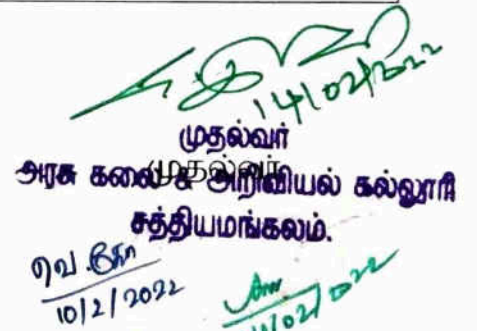 14/02/2022
முதல்வர்
முதல்வர்
அரசு கலை & அறிவியல் கல்லூரி
சத்தியமங்கலம்.
10/2/2022